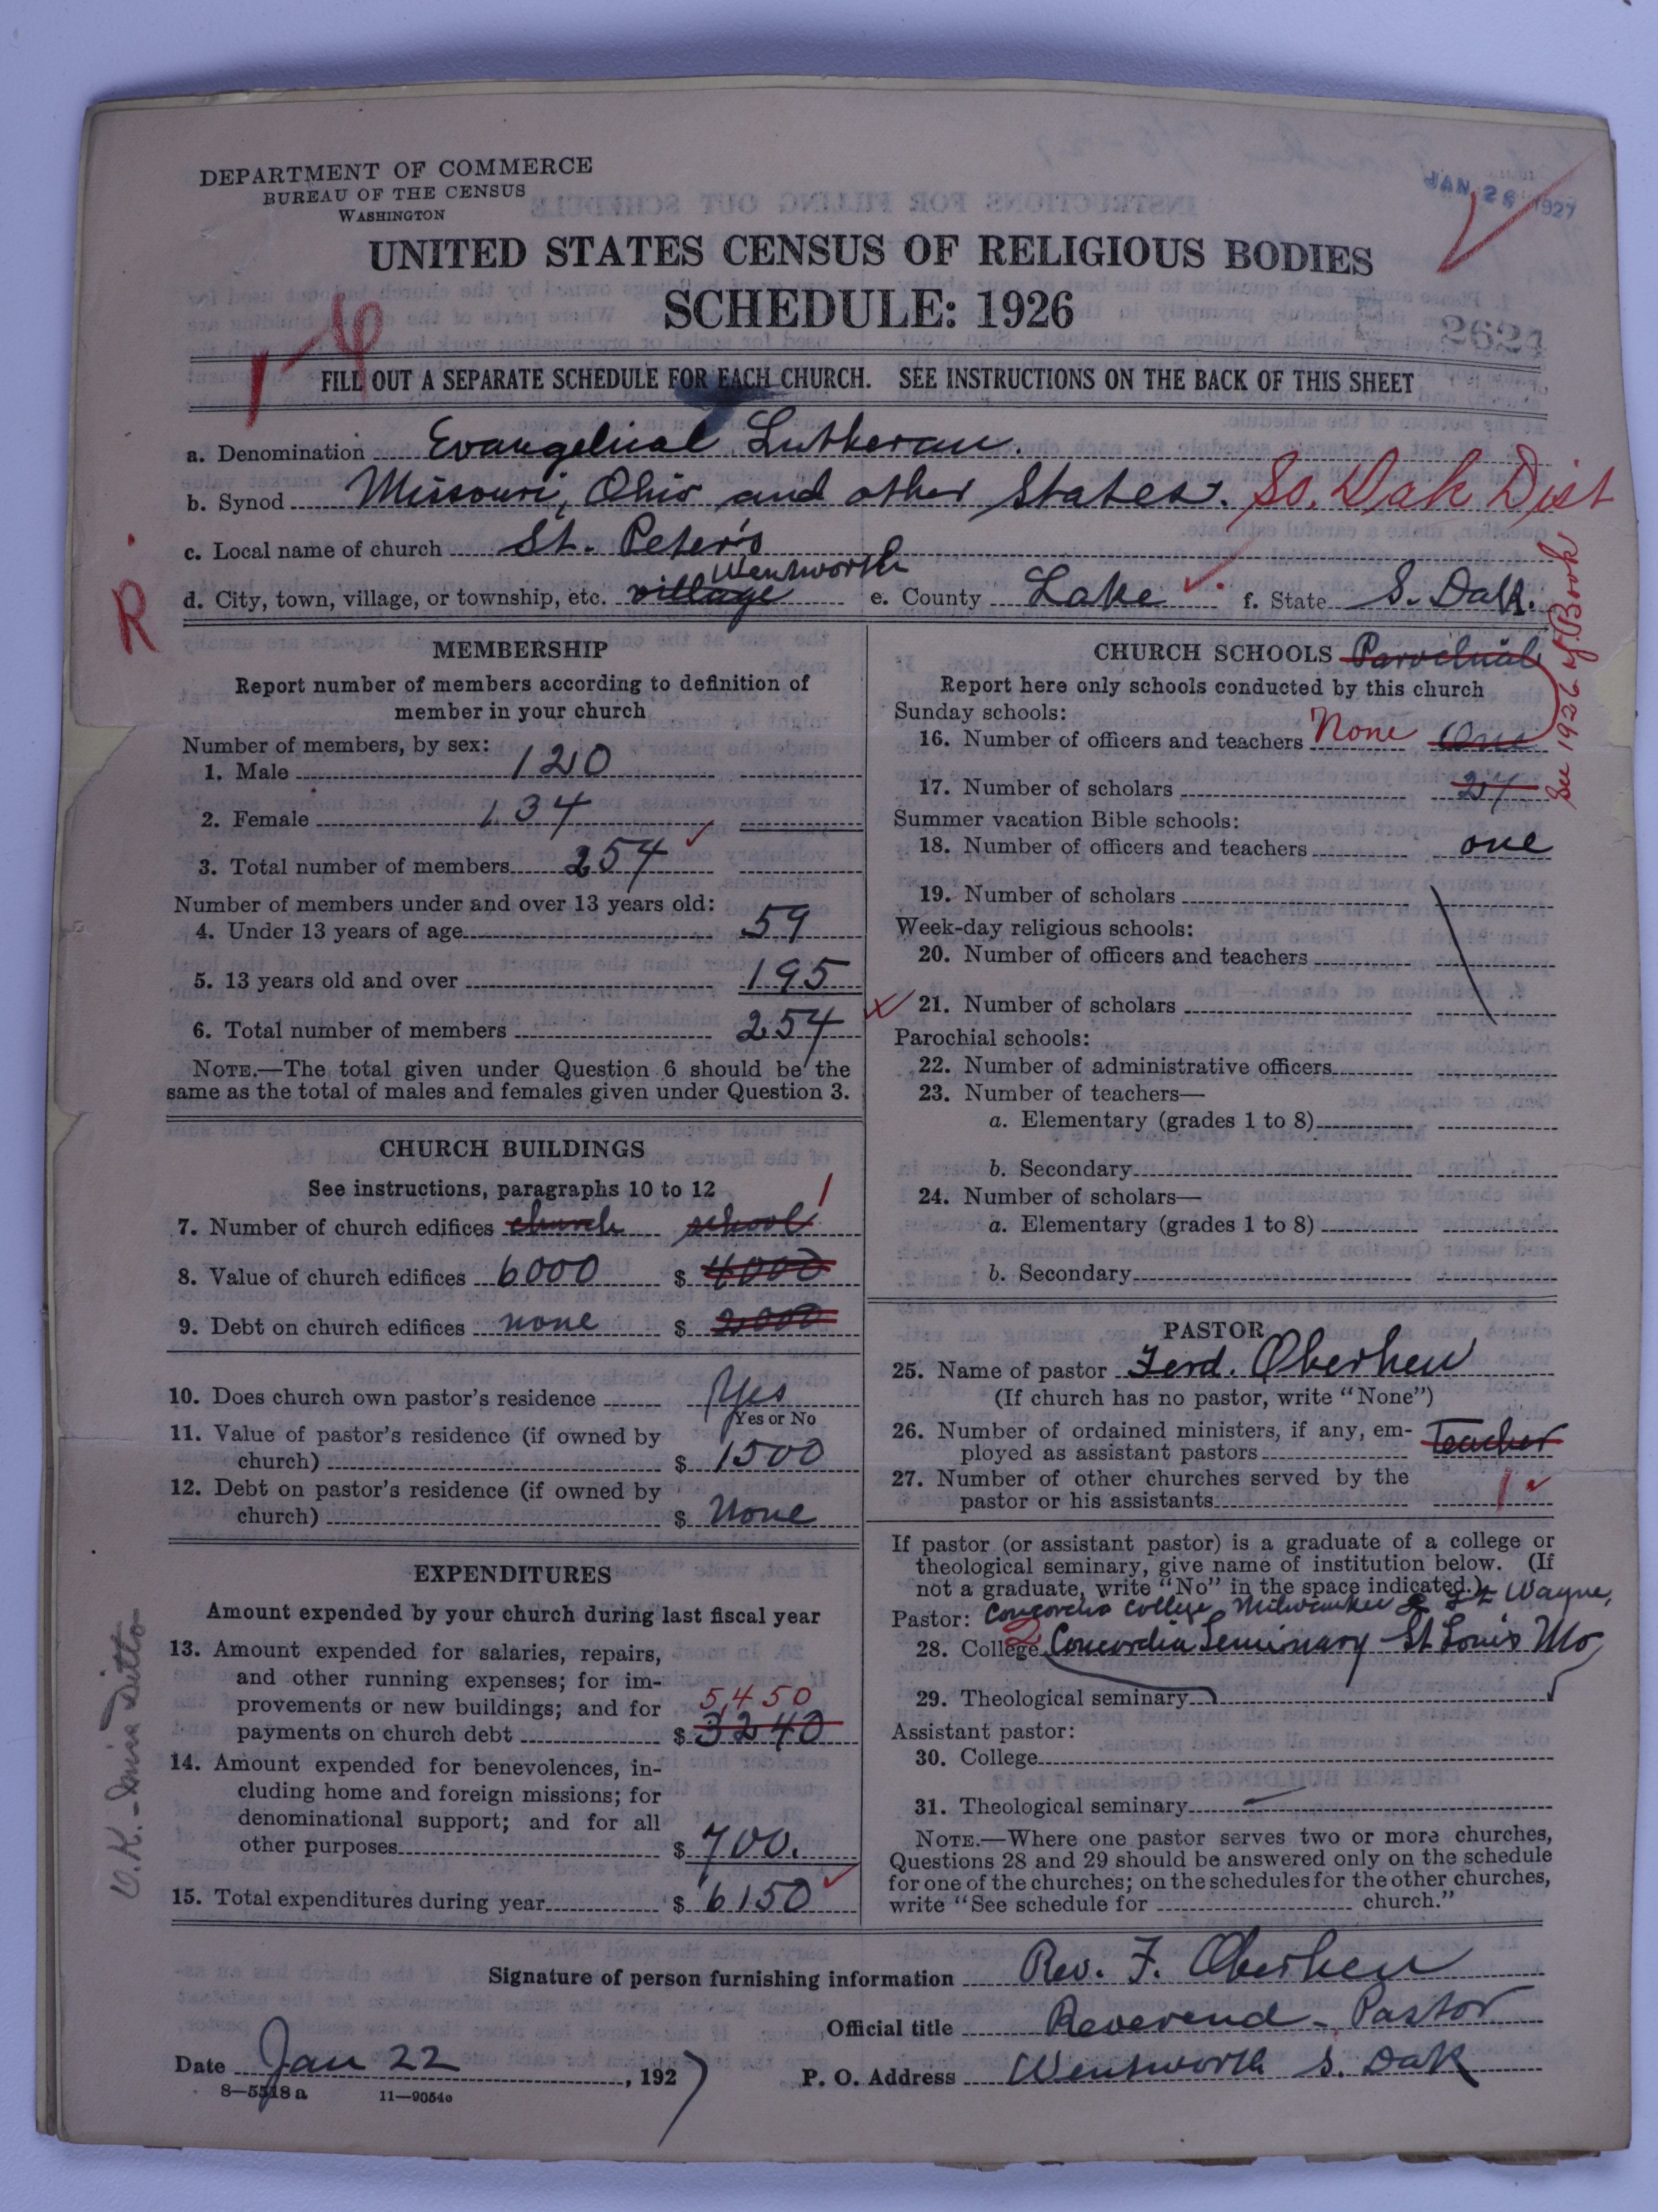 DEPARTMENT OF COMMERCE
BUREAU OF THE CENSUS
WASHINGTON
JAN 28 1927
UNITED STATES CENSUS OF RELIGIOUS BODIES
SCHEDULE: 1926
2624
FILL OUT A SEPARATE SCHEDULE FOR EACH CHURCH. SEE INSTRUCTIONS ON THE BACK OF THIS SHEET
a. Denomination Evangelical Lutheran.
b. Synod Missouri, Ohio and other States. So. Dak Dist
c. Local name of church St. Peter's
d. City, town, village, or township, etc. village Wentworth e. County Lake f. State S. Dak.
R
See 1926 Y. Book
MEMBERSHIP
Report number of members according to definition of
member in your church
Number of members, by sex:
1. Male 120
2. Female 134
3. Total number of members 254
Number of members under and over 13 years old:
4. Under 13 years of age 59
5. 13 years old and over 195
6. Total number of members 254
NOTE.—The total given under Question 6 should be the
same as the total of males and females given under Question 3.
CHURCH BUILDINGS
See instructions, paragraphs 10 to 12
7. Number of church edifices church school 1
8. Value of church edifices 6000 $ 4000
9. Debt on church edifices none $ 2000
10. Does church own pastor's residence Yes
Yes or No
11. Value of pastor's residence (if owned by
church) $ 1500
12. Debt on pastor's residence (if owned by
church) $ None
EXPENDITURES
Amount expended by your church during last fiscal year
13. Amount expended for salaries, repairs,
and other running expenses; for im-
provements or new buildings; and for 5,450
payments on church debt $ 3240
14. Amount expended for benevolences, in-
cluding home and foreign missions; for
denominational support; and for all
other purposes $ 700.
15. Total expenditures during year $ 6150
CHURCH SCHOOLS Parochial
Report here only schools conducted by this church
Sunday schools:
16. Number of officers and teachers None One
17. Number of scholars 27
Summer vacation Bible schools:
18. Number of officers and teachers one
19. Number of scholars
Week-day religious schools:
20. Number of officers and teachers
21. Number of scholars
Parochial schools:
22. Number of administrative officers
23. Number of teachers—
a. Elementary (grades 1 to 8)
b. Secondary
24. Number of scholars—
a. Elementary (grades 1 to 8)
b. Secondary
PASTOR
25. Name of pastor Ferd. Oberheu
(If church has no pastor, write "None")
26. Number of ordained ministers, if any, em-
ployed as assistant pastors teacher
27. Number of other churches served by the
pastor or his assistants 1
If pastor (or assistant pastor) is a graduate of a college or
theological seminary, give name of institution below. (If
not a graduate, write "No" in the space indicated.)
Pastor: Concordia College, Milwaukee & Ft Wayne,
28. College 2 Concordia Seminary St Louis Mo
29. Theological seminary
Assistant pastor:
30. College
31. Theological seminary
NOTE.—Where one pastor serves two or more churches,
Questions 28 and 29 should be answered only on the schedule
for one of the churches; on the schedules for the other churches,
write "See schedule for church."
Signature of person furnishing information Rev. F. Oberheu
Official title Reverend - Pastor
Date Jan 22, 1927 P. O. Address Wentworth S. Dak
8—5518a 11—9054o
O.K.